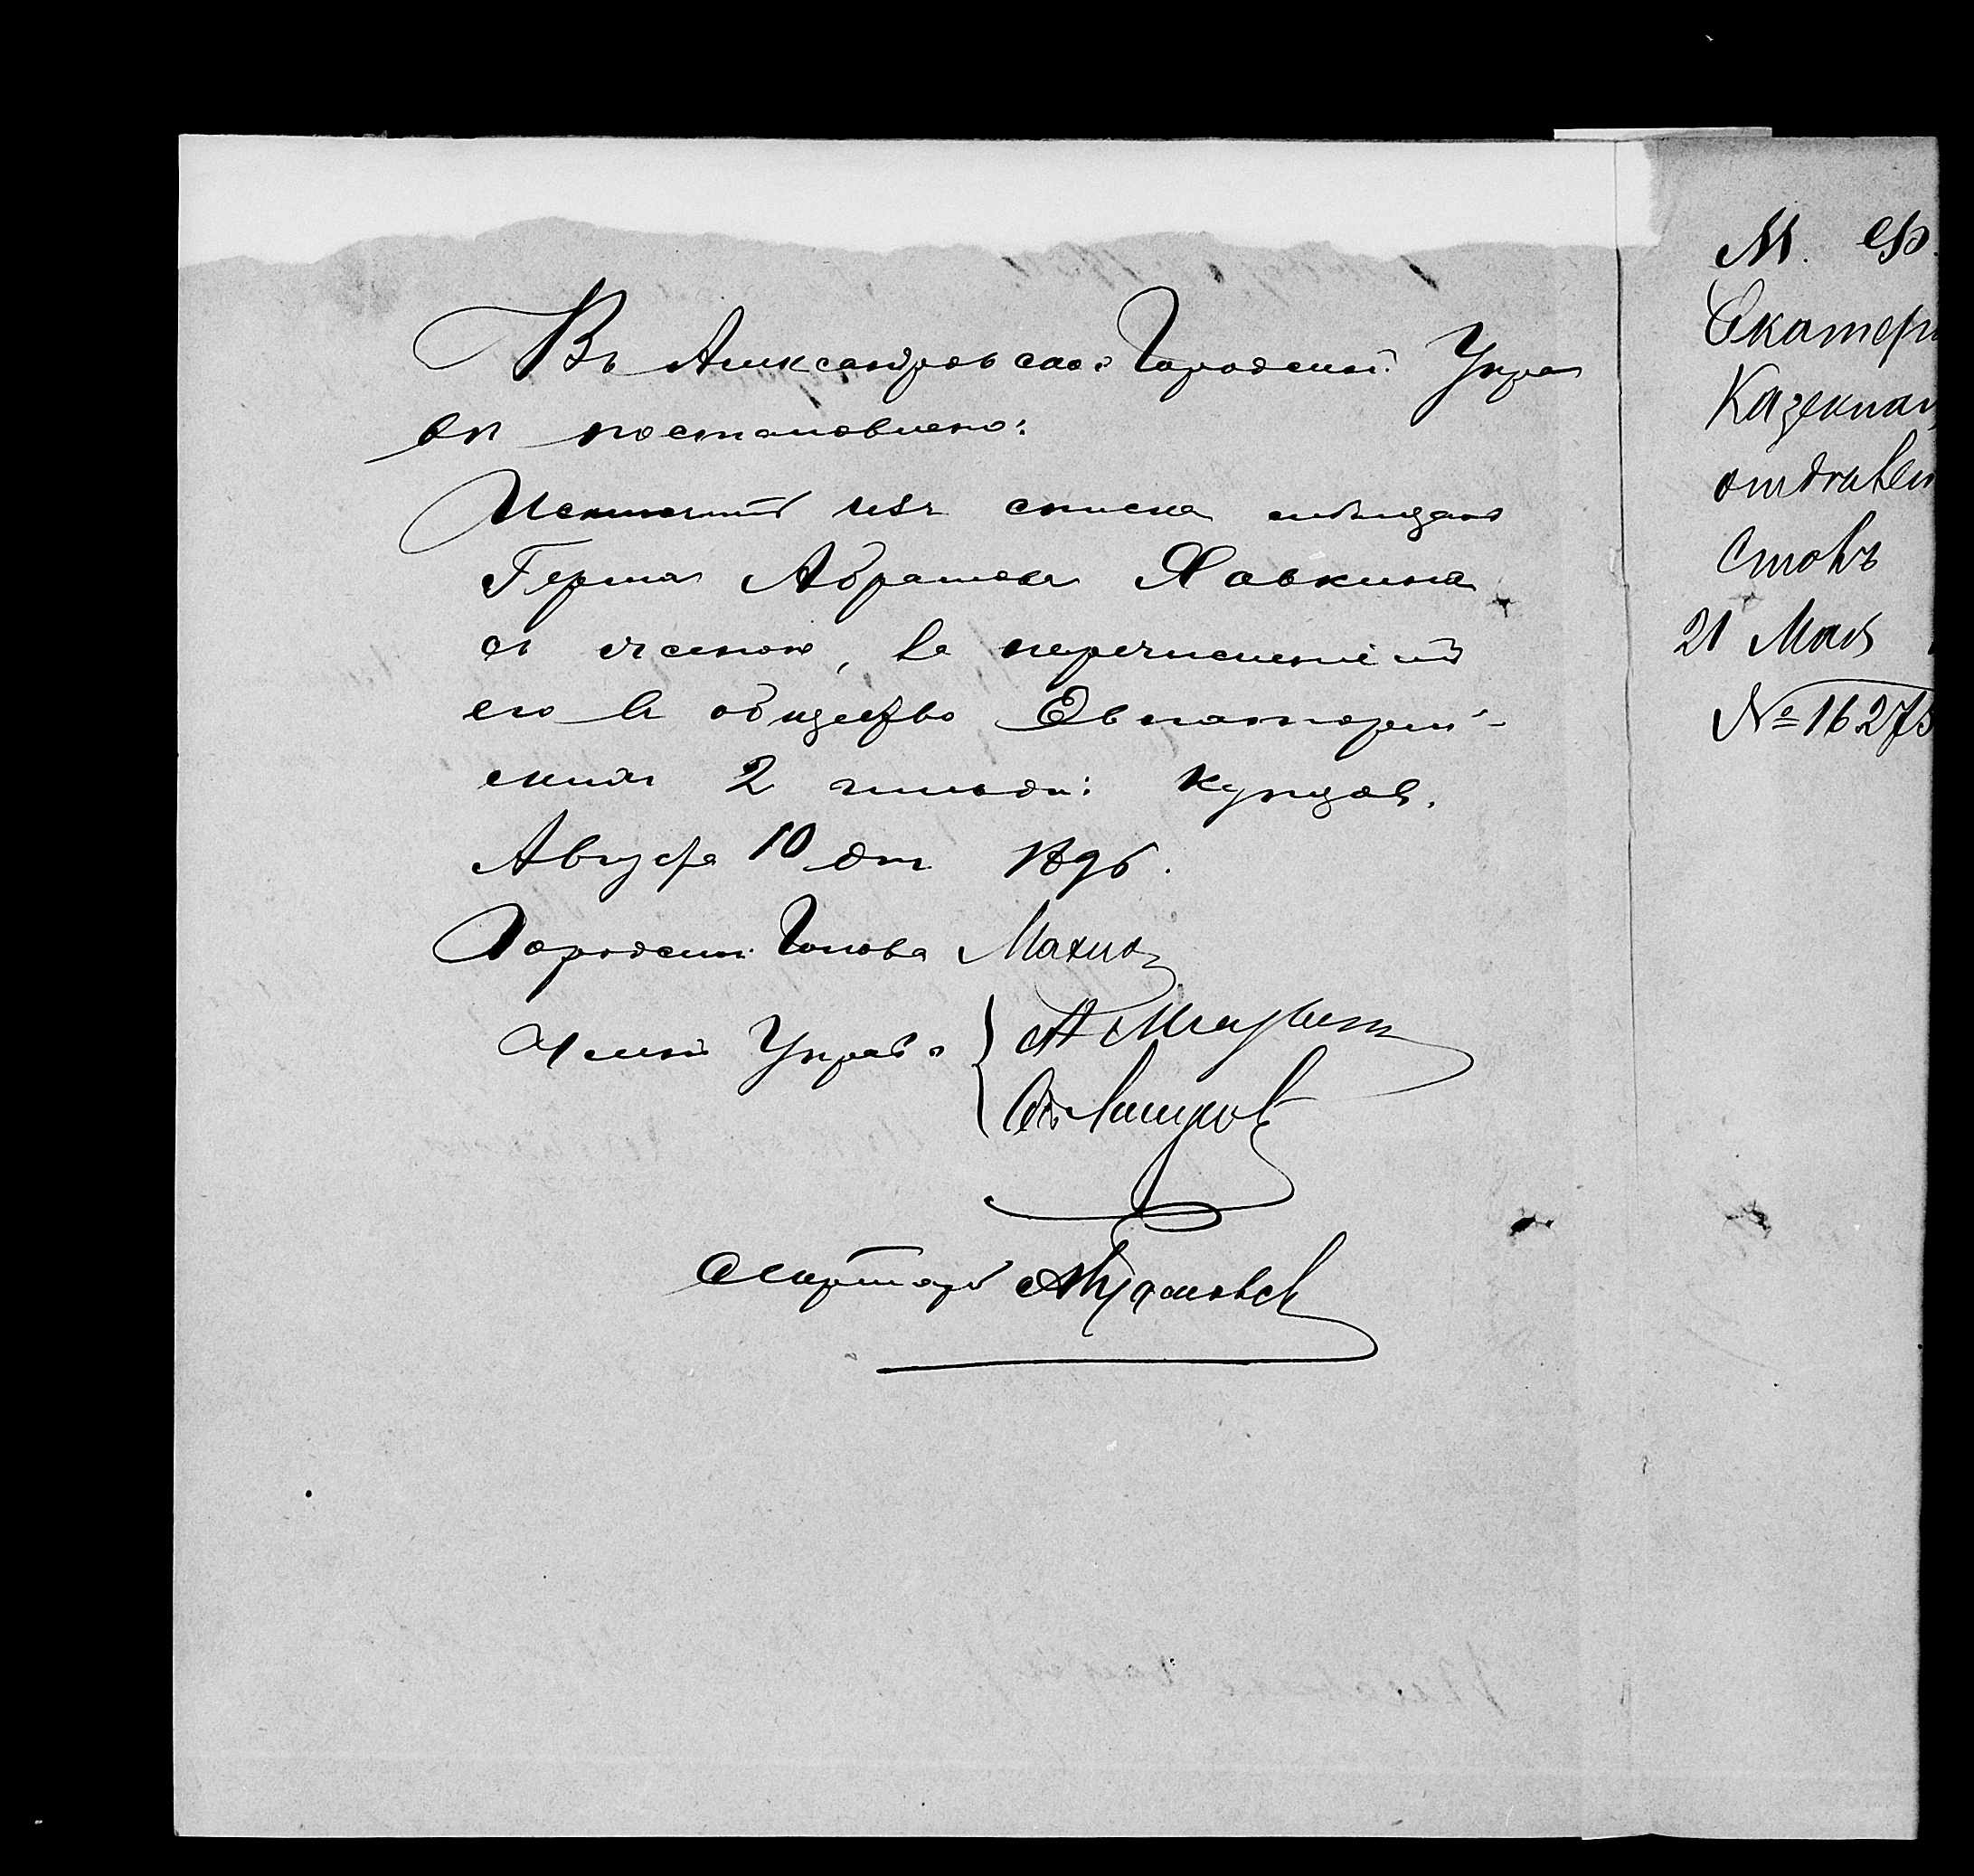 Въ Александровской Городской Упра
вѣ постановлено:
Исключить изъ списка мѣщанъ
Герша Абрамова Хавкина
съ женою, за перечисленіемъ
его въ общество Евпаторій-
скихъ 2 гильдіи купцовъ.
Августа 10 дня 1896.
Городской Голова Махно
Члены Управы
Секретарь
М. Ф.
Екатери
Казенная
отдѣлен
столъ
21 Мая
№ 16275